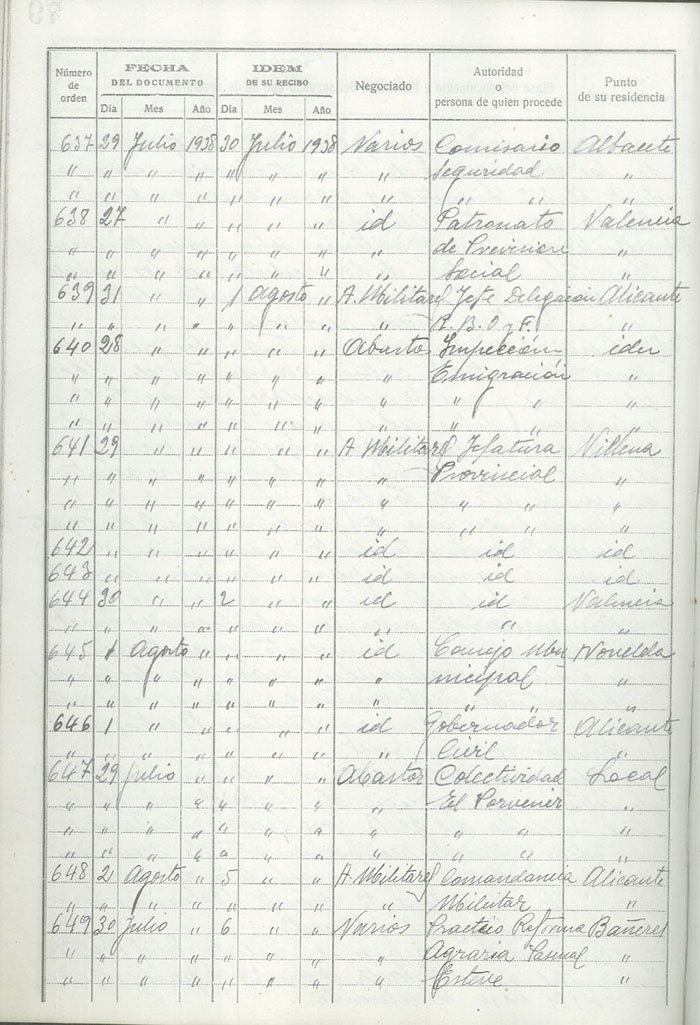 Número de orden | FECHA DEL DOCUMENTO | IDEM DE SU RECIBO | Negociado | Autoridad o persona de quien procede | Punto de su residencia
Dia | Mes | Año | Dia | Mes | Año
637 29 Julio 1938 30 Julio 1938 Varios Comisario Albacete
" " " " " " " " Seguridad "
" " " " " " " " " " "
638 27 " " " " " id Patronato Valencia
" " " " " " " " de Prevision "
" " " " " " " " Social "
639 31 " " 1 Agosto " A. Militares Jefe Delegación Alicante
" " " " " " " " R. B. O y F. "
640 28 " " " " " Abastos Inspección idem
" " " " " " " " Emigración "
" " " " " " " " " " "
" " " " " " " " " " "
641 29 " " " " " A. Militares Jefatura Villena
" " " " " " " " Provincial "
" " " " " " " " " " "
" " " " " " " " " " "
642 " " " " " " id id id
643 " " " " " " id id id
644 30 " " 2 " " id id Valencia
" " " " " " " " " "
645 1 Agosto " " " " id Consejo Mu Novelda
" " " " " " " " nicipal "
" " " " " " " " " " "
646 1 " " " " " id Gobernador Alicante
" " " " " " " " Civil "
647 29 Julio " " " " Abastos Colectividad Local
" " " " 4 " " " El Porvenir "
" " " " " " " " " " "
" " " " " " " " " " "
648 2 Agosto " 5 " " A. Militares Comandancia Alicante
" " " " " " " " Militar "
649 30 Julio " 6 " " Varios Reforma Bañeres
" " " " " " " " Agraria Pascual "
" " " " " " " " Esteve "